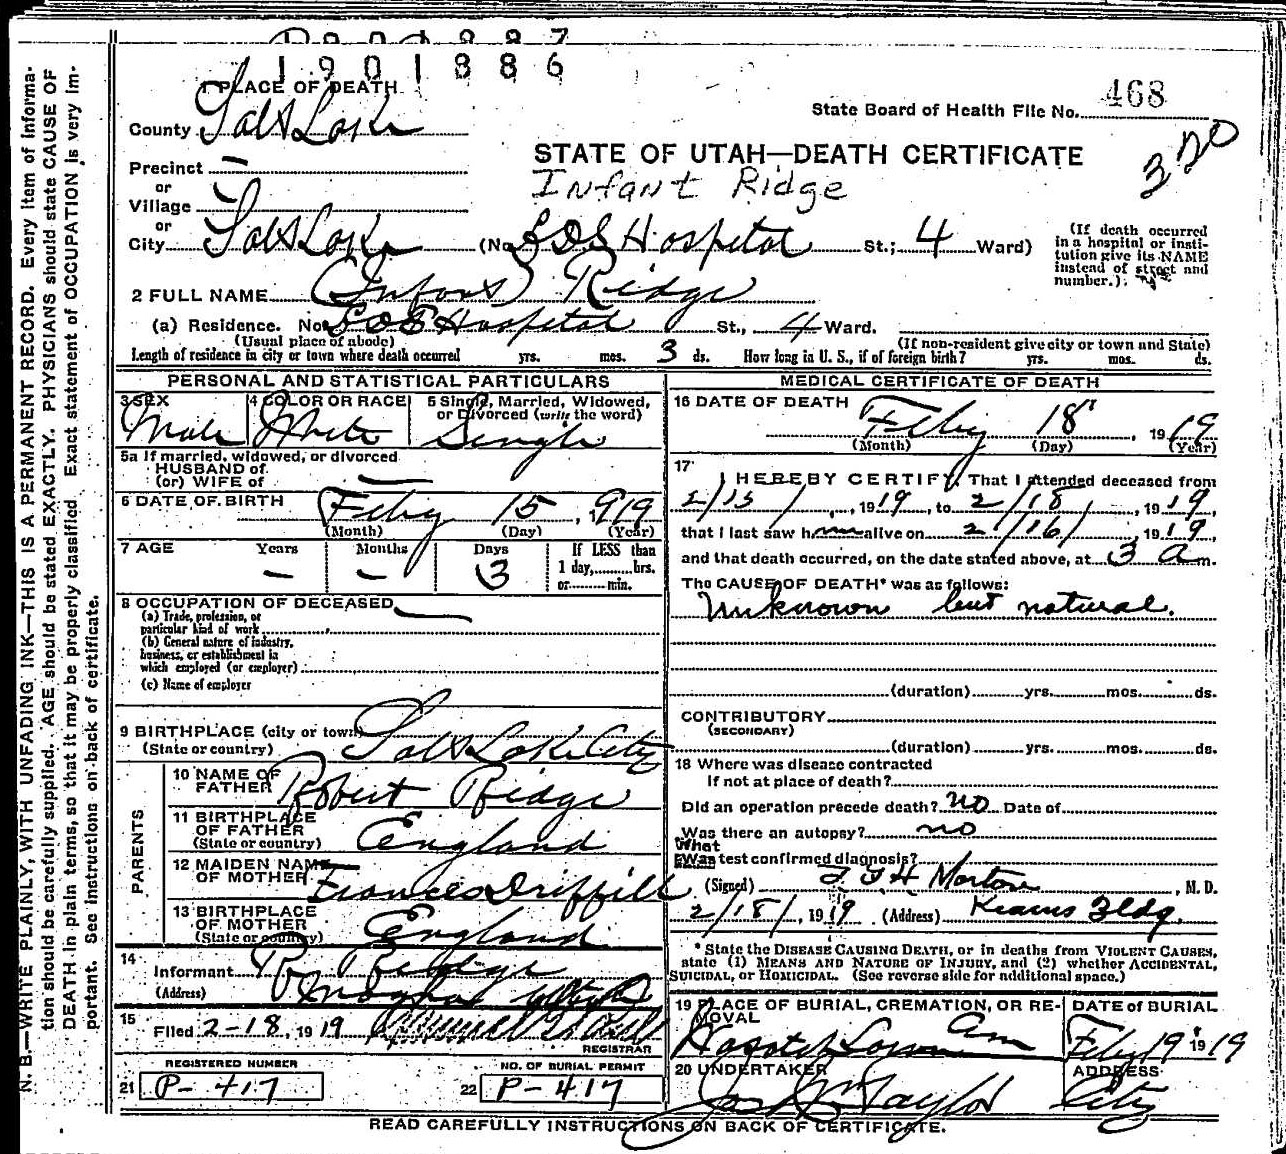 1901886
1 PLACE OF DEATH
State Board of Health File No. 468
County Salt Lake
320
STATE OF UTAH—DEATH CERTIFICATE
Precinct —
or
Infant Ridge
Village
or
City Salt Lake (No. LDS Hospital St.; 4 Ward)
(If death occurred
in a hospital or insti-
tution give its NAME
instead of street and
number.)
2 FULL NAME (Infant) Ridge
(a) Residence. No. LDS Hospital St., 4 Ward.
(Usual place of abode)
(If non-resident give city or town and State)
Length of residence in city or town where death occurred yrs. mos. 3 ds. How long in U. S., if of foreign birth? yrs. mos. ds.
PERSONAL AND STATISTICAL PARTICULARS
3 SEX
Male
4 COLOR OR RACE
White
5 Single, Married, Widowed,
or Divorced (write the word)
Single
5a If married, widowed, or divorced
HUSBAND of
(or) WIFE of —
6 DATE OF BIRTH Feby 15, 919
(Month) (Day) (Year)
7 AGE Years Months Days If LESS than
— — 3 1 day,......hrs.
or......min.
8 OCCUPATION OF DECEASED —
(a) Trade, profession, or
particular kind of work
(b) General nature of industry,
business, or establishment in
which employed (or employer)
(c) Name of employer
9 BIRTHPLACE (city or town) Salt Lake City
(State or country)
PARENTS
10 NAME OF
FATHER Robert Ridge
11 BIRTHPLACE
OF FATHER England
(State or country)
12 MAIDEN NAME
OF MOTHER Frances Driffill
13 BIRTHPLACE
OF MOTHER England
(State or country)
14
Informant R Ridge
(Address)
15
Filed 2-18, 1919
REGISTRAR
REGISTERED NUMBER
21 P-417
NO. OF BURIAL PERMIT
22 P-417
MEDICAL CERTIFICATE OF DEATH
16 DATE OF DEATH
Feby 18, 1919
(Month) (Day) (Year)
17
I HEREBY CERTIFY, That I attended deceased from
2/15/, 1919, to 2/18, 1919,
that I last saw him alive on 2/16/, 1919,
and that death occurred, on the date stated above, at 3 a m.
The CAUSE OF DEATH* was as follows:
Unknown but natural.
(duration) yrs. mos. ds.
CONTRIBUTORY
(SECONDARY)
(duration) yrs. mos. ds.
18 Where was disease contracted
If not at place of death?
Did an operation precede death? no Date of
Was there an autopsy? no
What
test confirmed diagnosis?
(Signed) Morton, M. D.
2/18/, 1919 (Address) Kearns Bldg.
*State the DISEASE CAUSING DEATH, or in deaths from VIOLENT CAUSES,
state (1) MEANS AND NATURE OF INJURY, and (2) whether ACCIDENTAL,
SUICIDAL, or HOMICIDAL. (See reverse side for additional space.)
19 PLACE OF BURIAL, CREMATION, OR RE-
MOVAL
Wasatch Lawn
DATE OF BURIAL
Feby 19 1919
20 UNDERTAKER
Taylor
ADDRESS
City
READ CAREFULLY INSTRUCTIONS ON BACK OF CERTIFICATE.
N. B.—WRITE PLAINLY, WITH UNFADING INK—THIS IS A PERMANENT RECORD. Every item of informa-
tion should be carefully supplied. AGE should be stated EXACTLY. PHYSICIANS should state CAUSE OF
DEATH in plain terms, so that it may be properly classified. Exact statement of OCCUPATION is very im-
portant. See instructions on back of certificate.